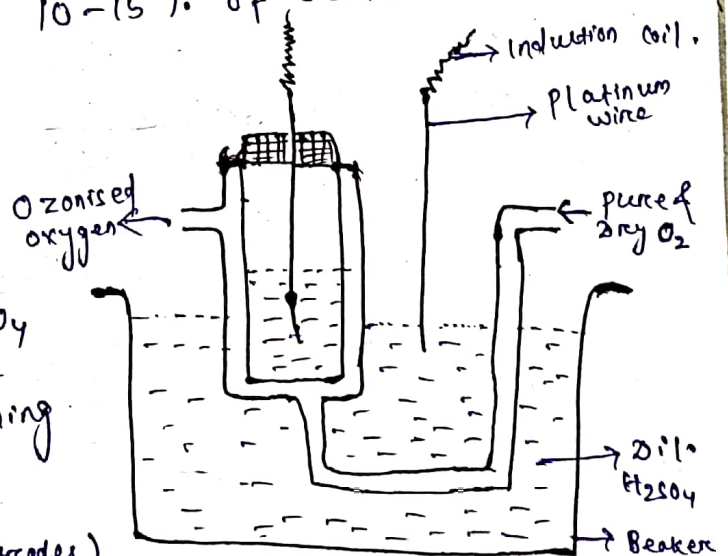 10-15 %. of
Induction coil.
Platinum
wire
Ozonised
oxygen
pure &
Dry O2
Dil.
H2SO4
Beaker